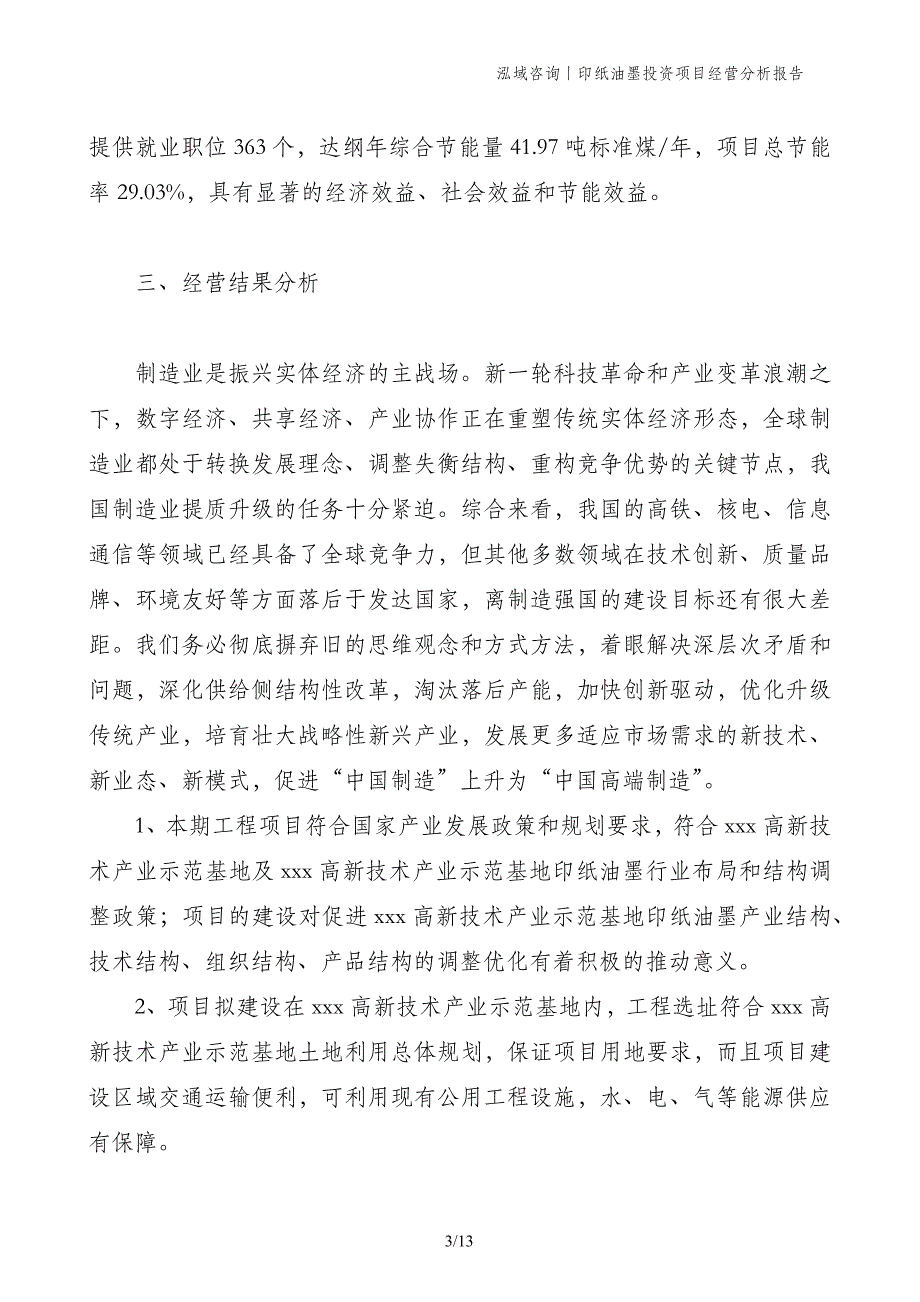 泓域咨询|印纸油墨投资项目经营分析报告
提供就业职位 363 个，达纲年综合节能量 41.97 吨标准煤/年，项目总节能
率 29.03%，具有显著的经济效益、社会效益和节能效益。
三、经营结果分析
制造业是振兴实体经济的主战场。新一轮科技革命和产业变革浪潮之
下，数字经济、共享经济、产业协作正在重塑传统实体经济形态，全球制
造业都处于转换发展理念、调整失衡结构、重构竞争优势的关键节点，我
国制造业提质升级的任务十分紧迫。综合来看，我国的高铁、核电、信息
通信等领域已经具备了全球竞争力，但其他多数领域在技术创新、质量品
牌、环境友好等方面落后于发达国家，离制造强国的建设目标还有很大差
距。我们务必彻底摒弃旧的思维观念和方式方法，着眼解决深层次矛盾和
问题，深化供给侧结构性改革，淘汰落后产能，加快创新驱动，优化升级
传统产业，培育壮大战略性新兴产业，发展更多适应市场需求的新技术、
新业态、新模式，促进“中国制造”上升为“中国高端制造”。
1、本期工程项目符合国家产业发展政策和规划要求，符合 xxx 高新技
术产业示范基地及 xxx 高新技术产业示范基地印纸油墨行业布局和结构调
整政策；项目的建设对促进 xxx 高新技术产业示范基地印纸油墨产业结构、
技术结构、组织结构、产品结构的调整优化有着积极的推动意义。
2、项目拟建设在 xxx 高新技术产业示范基地内，工程选址符合 xxx 高
新技术产业示范基地土地利用总体规划，保证项目用地要求，而且项目建
设区域交通运输便利，可利用现有公用工程设施，水、电、气等能源供应
有保障。
3/13